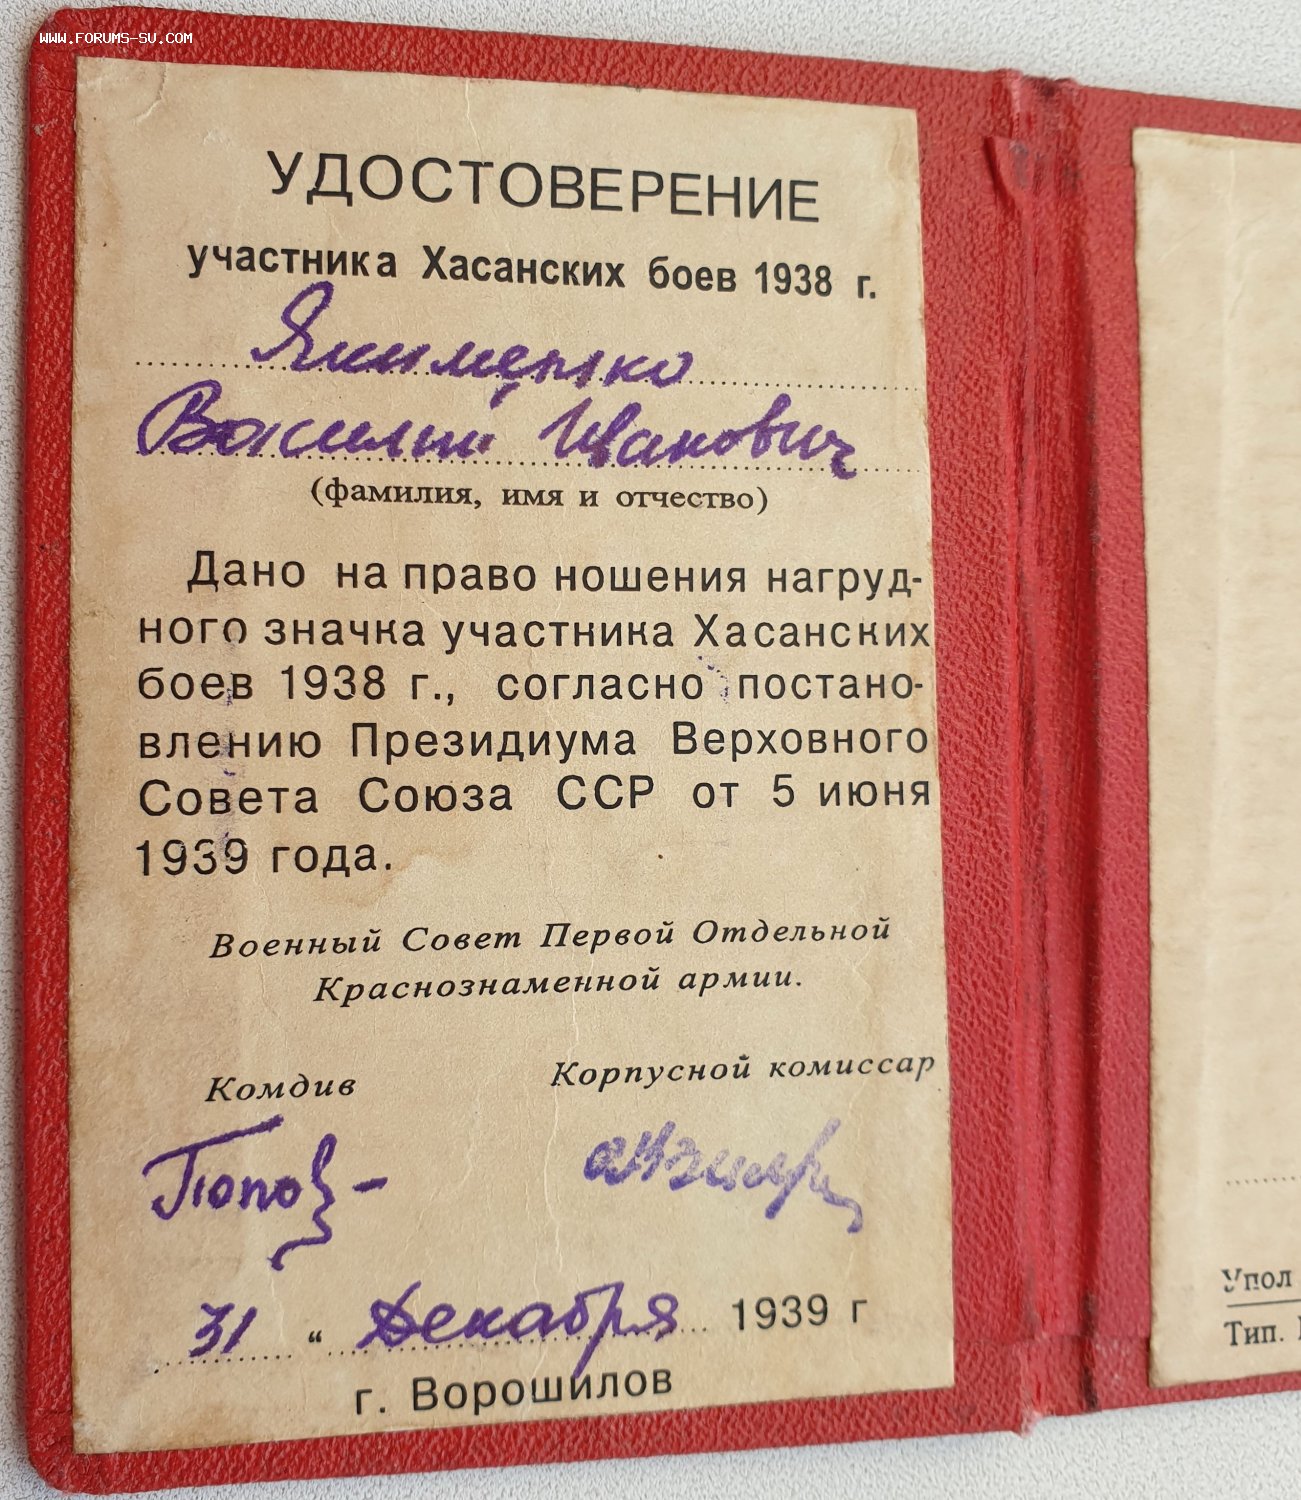 www.forums-su.com
УДОСТОВЕРЕНИЕ
участника Хасанских боев 1938 г.
Якименко
Василий Иванович
(фамилия, имя и отчество)
Дано на право ношения нагруд-
ного значка участника Хасанских
боев 1938 г., согласно постано-
влению Президиума Верховного
Совета Союза ССР от 5 июня
1939 года.
Военный Совет Первой Отдельной
Краснознаменной армии.
Комдив
Корпусной комиссар
Попов
31 " Декабря 1939 г
г. Ворошилов
Упол
Тип.